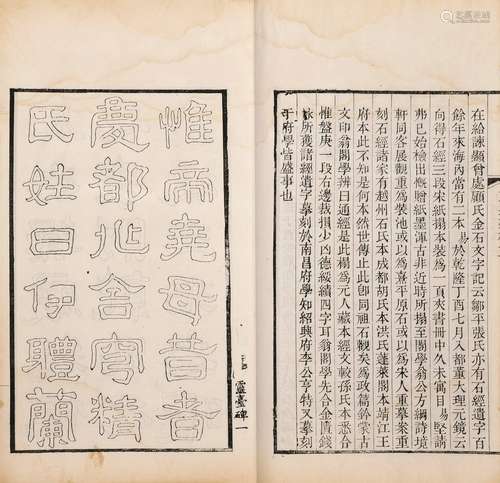 在給諫顯曾處顧氏金石文字記云鄒平張氏亦有石經文字百
餘年來海內當有二本易於乾隆丁酉七月入都董大理元鏡云
向得石經三段宋紙搨本裝為一頁夾書冊中久未寓目易堅請
弗已始檢出慨贈紙墨渾古非近時所搨至閣學翁公方綱詩境
軒同客展觀重為裝池或以為熹平原石或以為宋人重摹案重
刻石經諸家有越州石氏本成都胡氏本洪氏蓬萊閣本靖江王
府本此不知是何本然世傳止此卽同祖石觀矣為政篇鈐蒙古
文印翁閣學辨曰通經是此榻為元人藏本經文較孫氏本悉合
惟盤庚一段右邊裁損少凶德綏績四字耳翁閣學先合金匱錢
泳所獲諸經遺字摹刻於南昌府學知紹興府李公亨特又摹刻
于府學皆盛事也
靈臺碑 一
惟帝堯母昔者
慶都兆舍穹精
氏姓曰伊體蘭